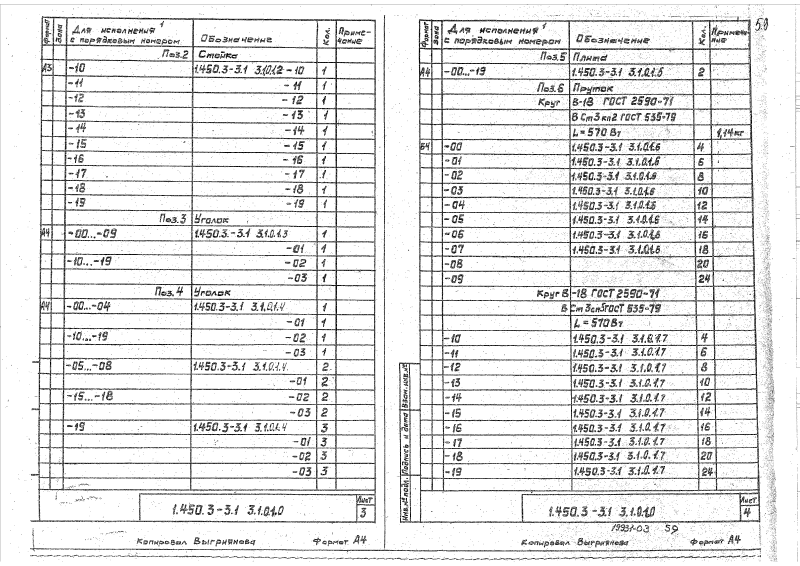 Формат Зона Для исполнения¹ с порядковым номером Обозначение Кол. Приме-чание
Поз.2 Стойка
А3 -10 1.450.3-3.1 3.1.0.1.2-10 1
-11 -11 1
-12 -12 1
-13 -13 1
-14 -14 1
-15 -15 1
-16 -16 1
-17 -17 1
-18 -18 1
-19 -19 1
Поз.3 Уголок
А4 -00...-09 1.450.3-3.1 3.1.0.1.3 1
-01 1
-10...-19 -02 1
-03 1
Поз.4 Уголок
А4 -00...-04 1.450.3-3.1 3.1.0.1.4 1
-01 1
-10...-19 -02 1
-03 1
-05...-08 1.450.3-3.1 3.1.0.1.4 2
-01 2
-15...-18 -02 2
-03 2
-19 1.450.3-3.1 3.1.0.1.4 3
-01 3
-02 3
-03 3
1.450.3-3.1 3.1.0.1.0 Лист 3
Копировал Выгриянова Формат А4
Формат Зона Для исполнения¹ с порядковым номером Обозначение Кол. Примеча-ние
Поз.5 Плита
А4 -00...-19 1.450.3-3.1 3.1.0.1.5 2
Поз.6 Пруток
Круг В-18 ГОСТ 2590-71
В Ст3кп2 ГОСТ 535-79
L=570 Вт 1,14кг
Б4 -00 1.450.3-3.1 3.1.0.1.6 4
-01 1.450.3-3.1 3.1.0.1.6 6
-02 1.450.3-3.1 3.1.0.1.6 8
-03 1.450.3-3.1 3.1.0.1.6 10
-04 1.450.3-3.1 3.1.0.1.6 12
-05 1.450.3-3.1 3.1.0.1.6 14
-06 1.450.3-3.1 3.1.0.1.6 16
-07 1.450.3-3.1 3.1.0.1.6 18
-08 20
-09 24
Круг В-18 ГОСТ 2590-71
В Ст3сп5 ГОСТ 535-79
L=570 Вт
-10 1.450.3-3.1 3.1.0.1.7 4
-11 1.450.3-3.1 3.1.0.1.7 6
-12 1.450.3-3.1 3.1.0.1.7 8
-13 1.450.3-3.1 3.1.0.1.7 10
-14 1.450.3-3.1 3.1.0.1.7 12
-15 1.450.3-3.1 3.1.0.1.7 14
-16 1.450.3-3.1 3.1.0.1.7 16
-17 1.450.3-3.1 3.1.0.1.7 18
-18 1.450.3-3.1 3.1.0.1.7 20
-19 1.450.3-3.1 3.1.0.1.7 24
Инв.№ подл. Подпись и дата Взам.инв.№
1.450.3-3.1 3.1.0.1.0 Лист 4
19931-03 59
Копировал Выгриянова Формат А4